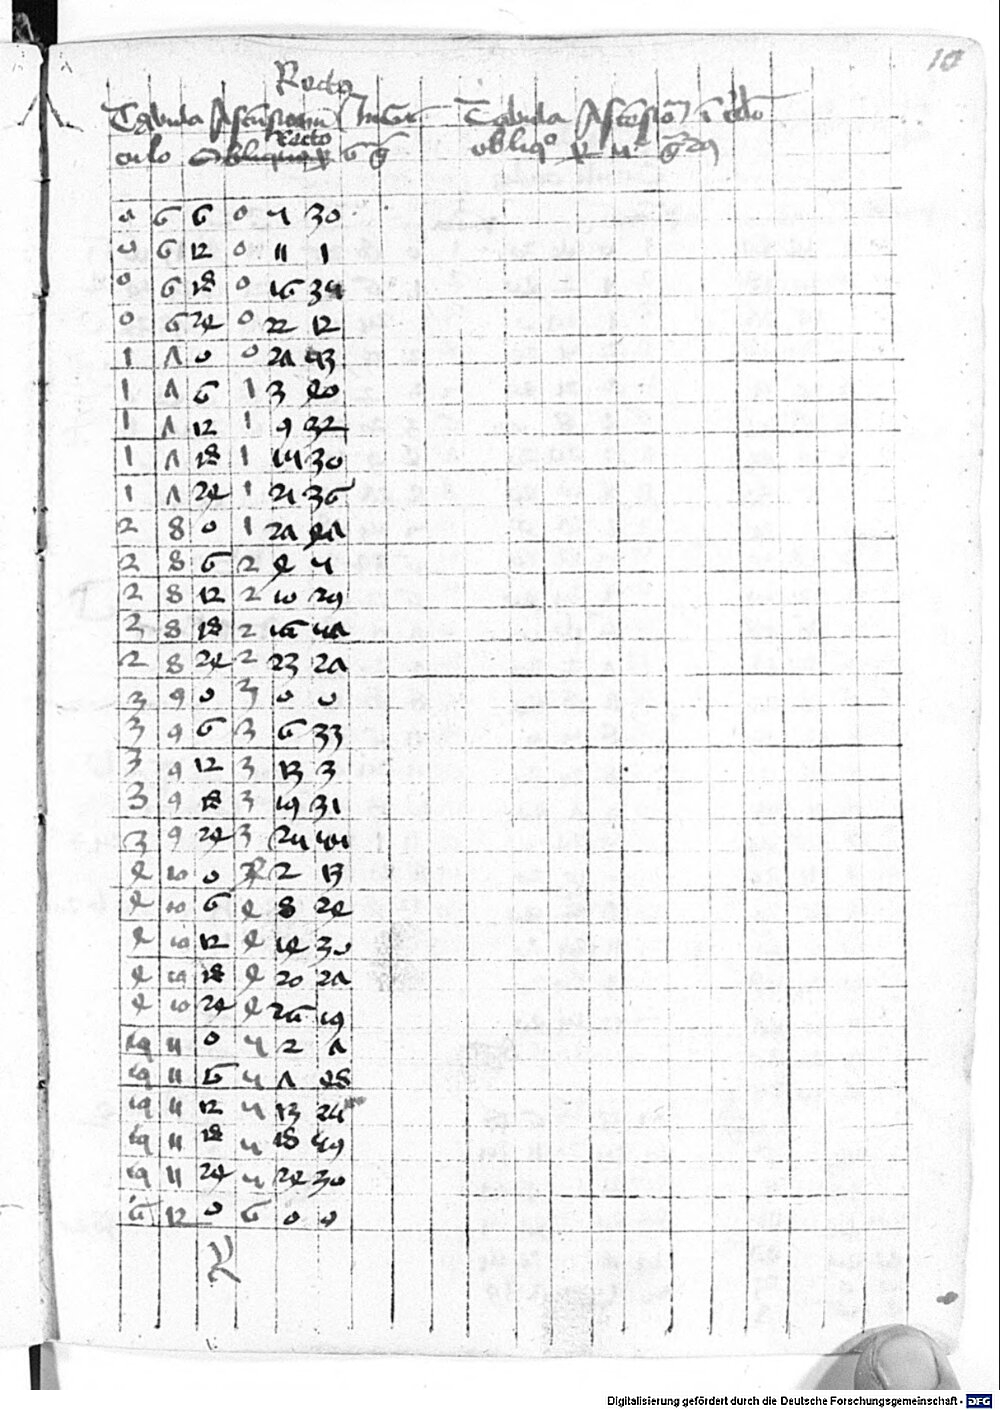 10
Recto
Tabula Ascensionum In Cir Tabula Ascesio
culo recto
obliquo
0 6 6 0 5 30
0 6 12 0 11 1
0 6 18 0 16 34
0 6 24 0 22 12
1 7 0 0 27 53
1 7 6 1 3 40
1 7 12 1 9 32
1 7 18 1 15 30
1 7 24 1 21 36
2 8 0 1 27 47
2 8 6 2 4 5
2 8 12 2 10 29
2 8 18 2 16 57
2 8 24 2 23 27
3 9 0 3 0 0
3 9 6 3 6 33
3 9 12 3 13 3
3 9 18 3 19 31
3 9 24 3 25 55
4 10 0 2 13
4 10 6 4 8 24
4 10 12 4 14 30
4 10 18 4 20 27
4 10 24 4 26 19
11 0 5 2 7
11 6 5 7 48
11 12 5 13 25
11 18 5 18 59
11 24 5 24 30
6 12 0 6 0 0
Digitalisierung gefördert durch die Deutsche Forschungsgemeinschaft - DFG